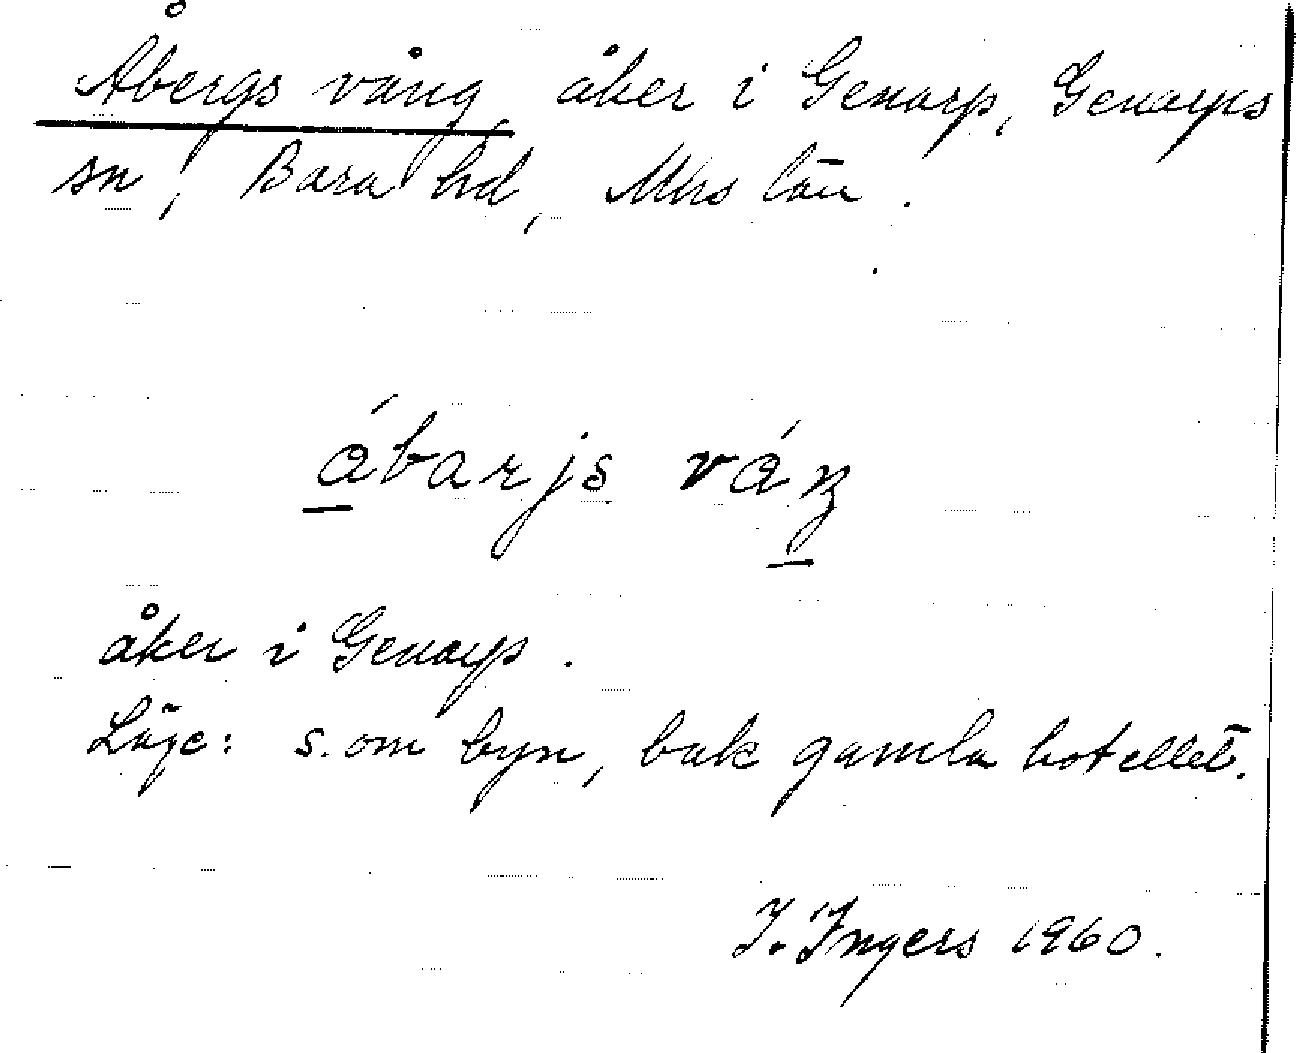 Åbergs vång, åker i Genarp, Genarps
sn, Bara hd, Mhs län.
ábarjs váŋ
åker i Genarp.
Läge: s. om byn, bak gamla hotellet.
I. Ingers 1960.